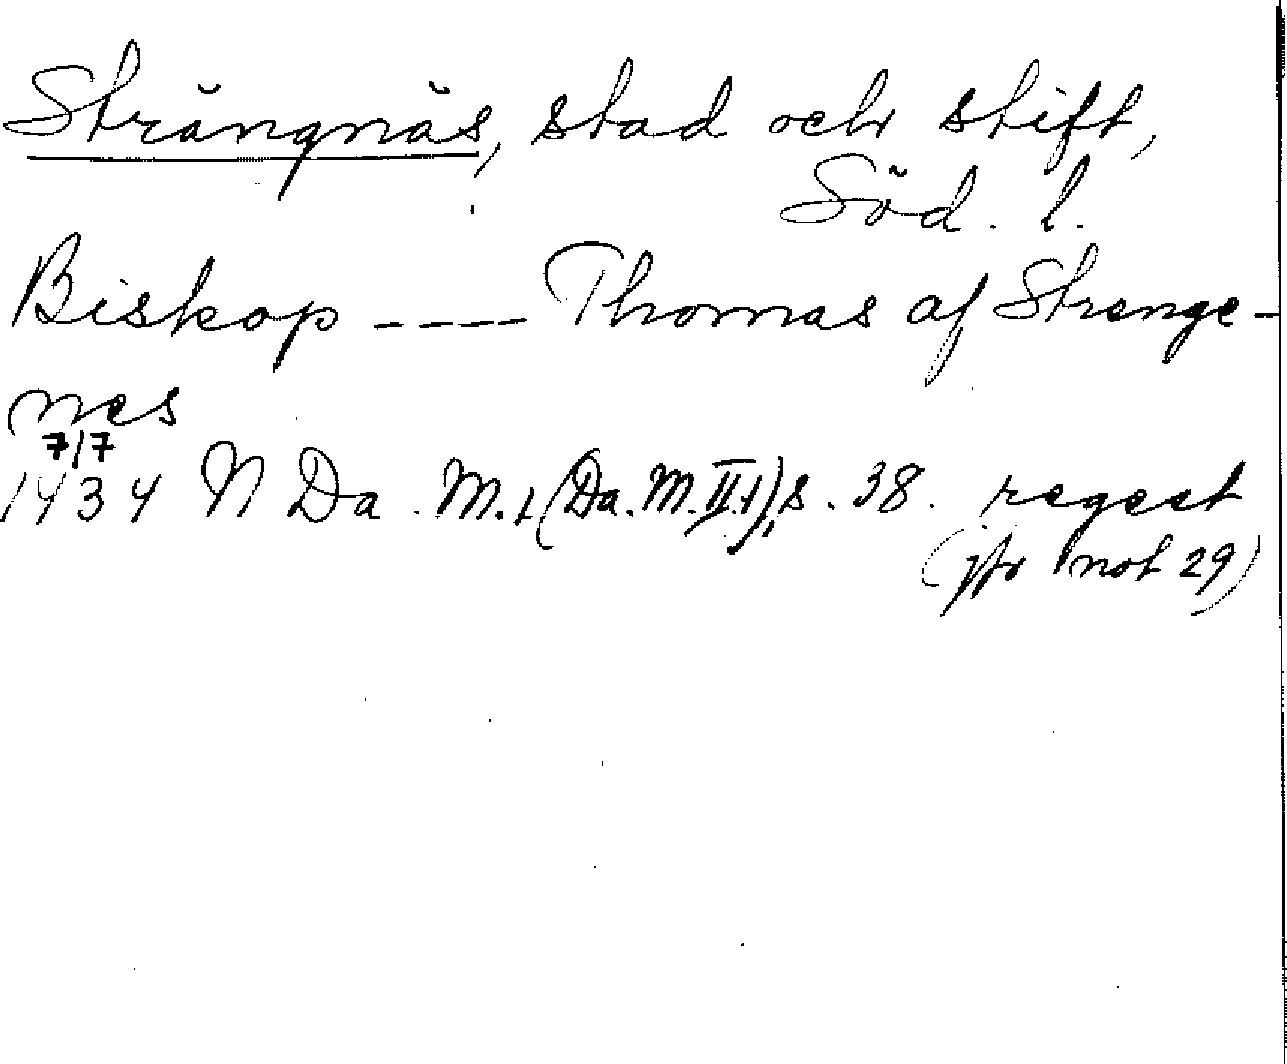 Strängnäs, stad och stift,
Söd. l.
Biskop ---- Thomas af Strenge-
nes
7/7
1434 N Da. M. 1 (Da. M. II.1), s. 38. regest
(jfr not 29)